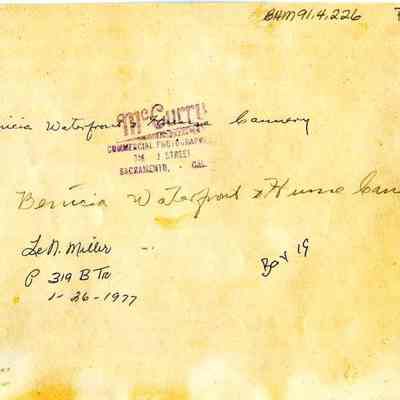 B4M91.4.226
nicia Waterfront & Hume Cannery
McCurry
COMMERCIAL PHOTOGRAPHER
J STREET
SACRAMENTO, CAL.
Benicia Waterfront & Hume Can
LeR. Miller
P 319 B Tr
1-26-1977
Box 19